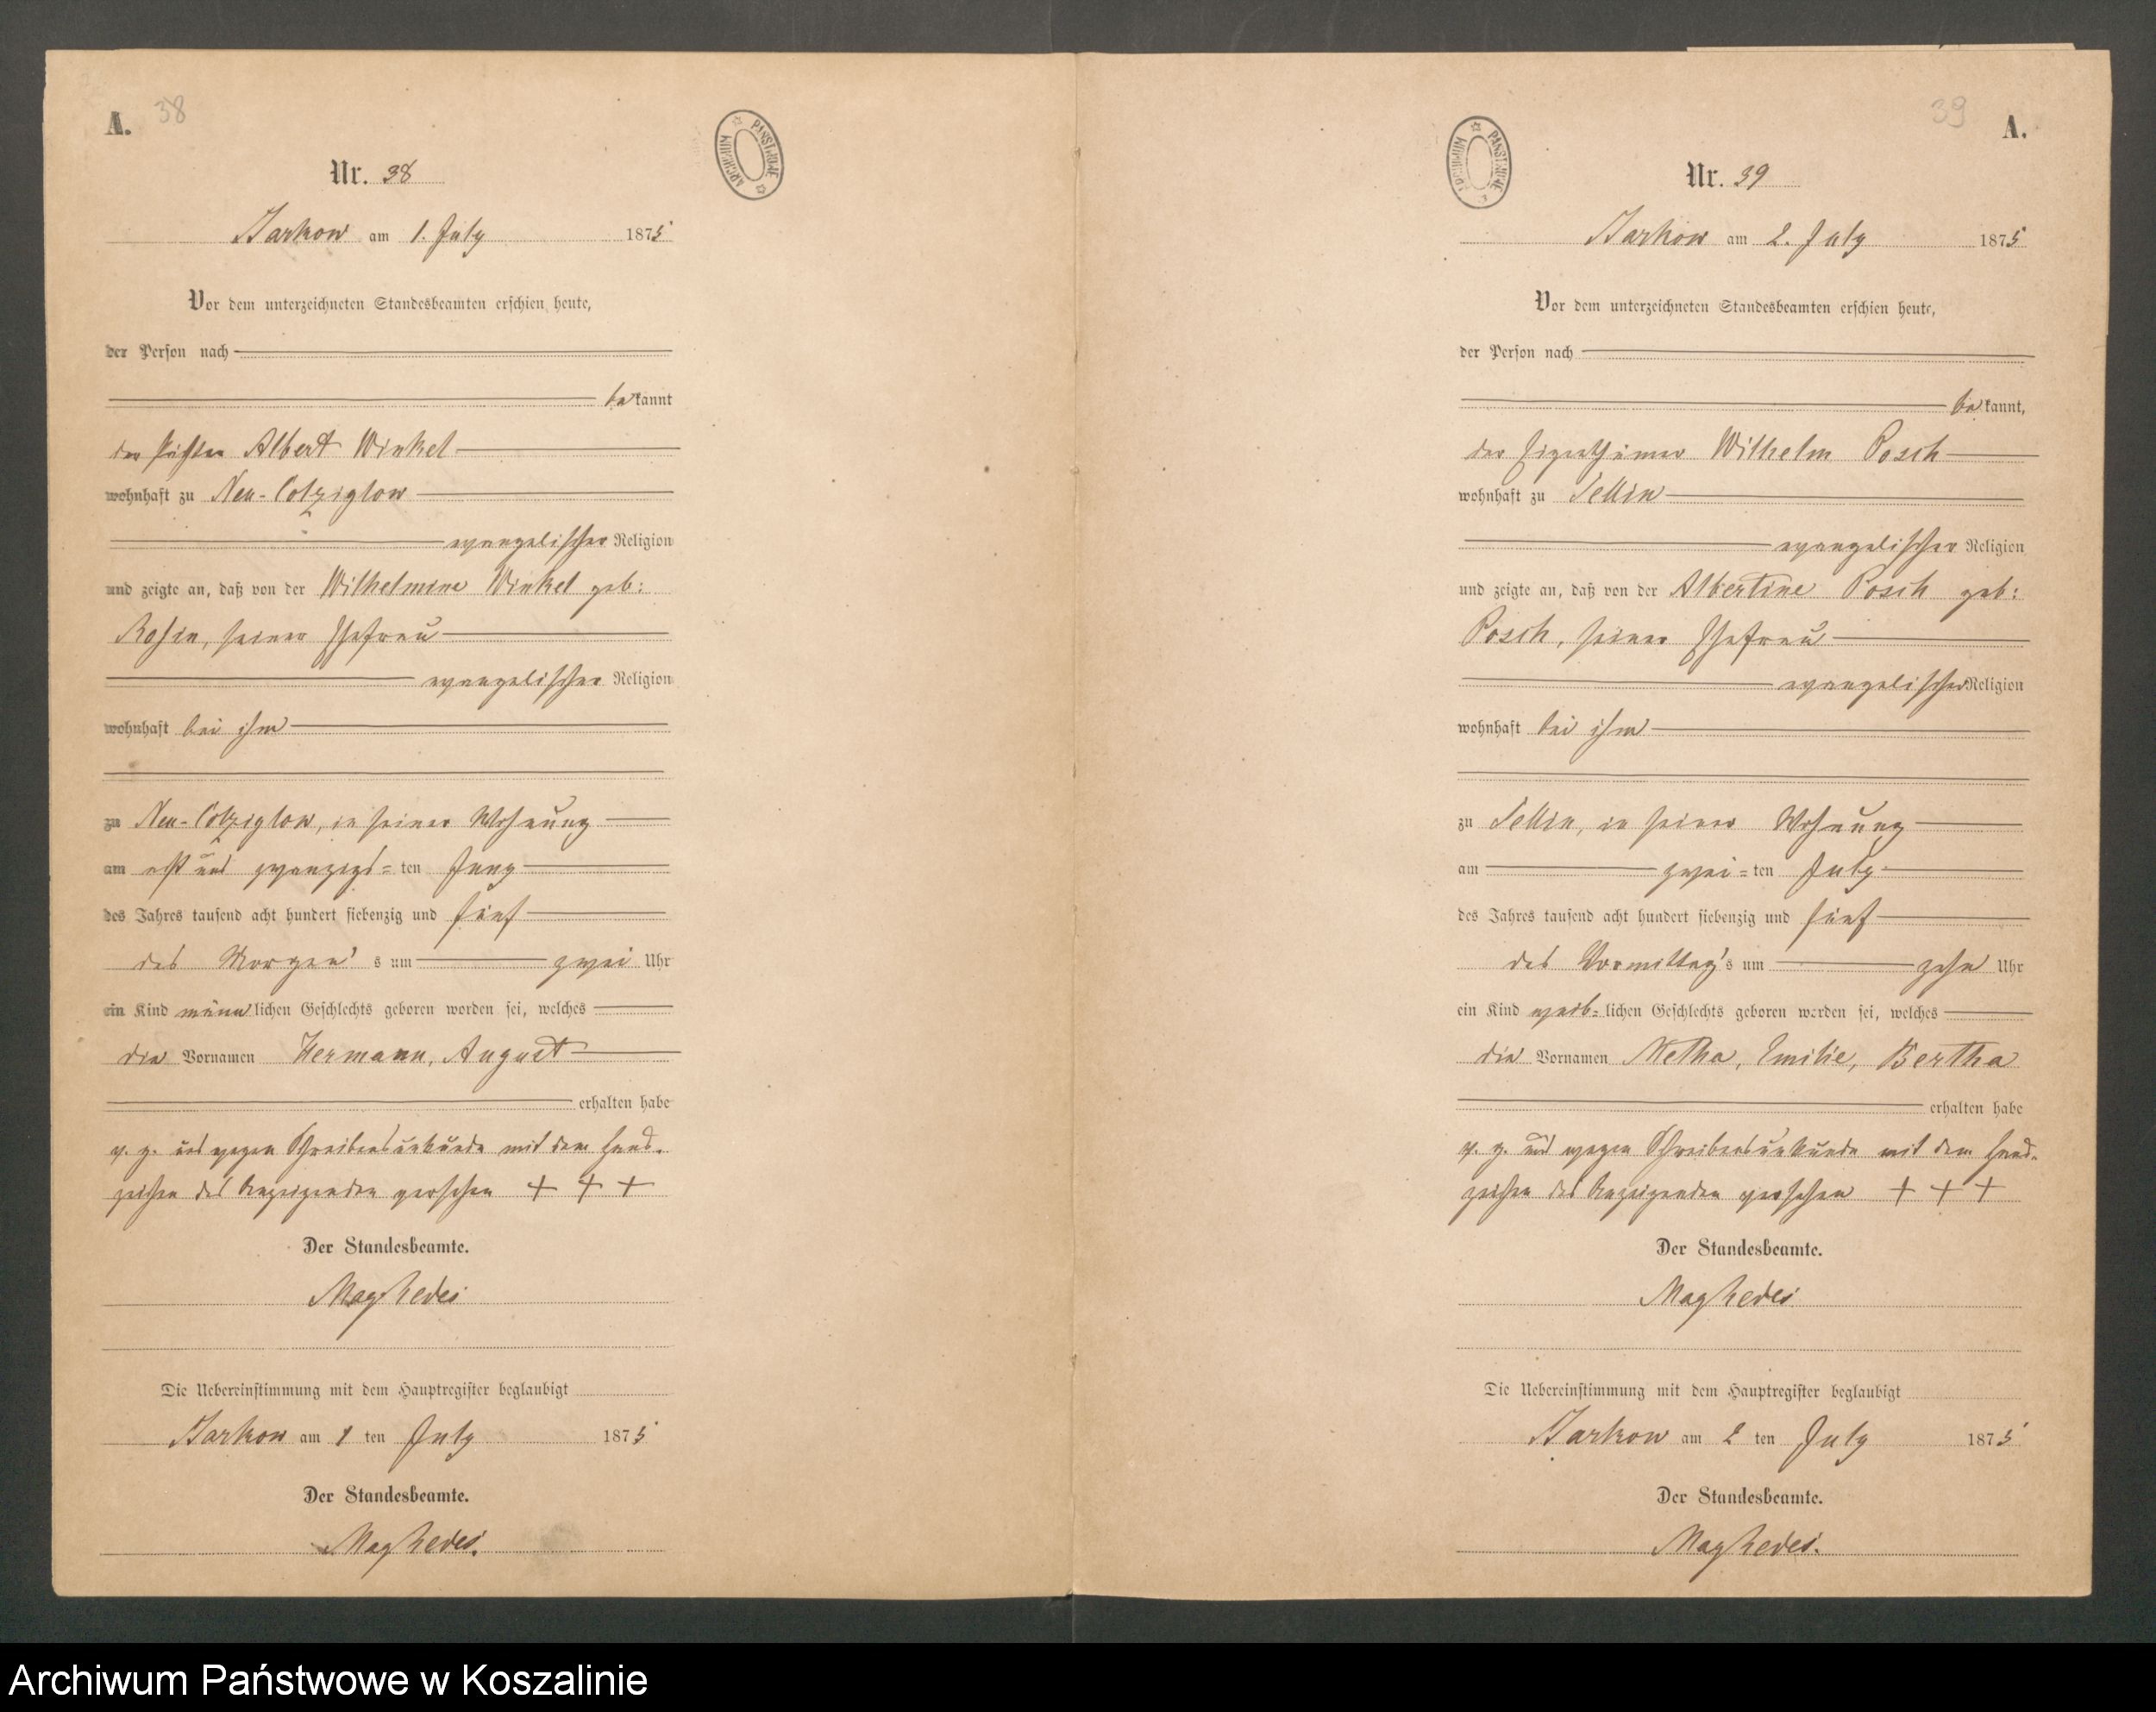 A. 38
ARCHIWUM PAŃSTWOWE
Nr. 38
Barkow am 1. July 1875
Vor dem unterzeichneten Standesbeamten erschien heute,
der Person nach
bekannt
der Albert Winkel
wohnhaft zu Neu-Colziglow
evangelischer Religion
und zeigte an, daß von der Wilhelmine Winkel geb:
Rosin, seiner Ehefrau
evangelischer Religion
wohnhaft bei ihm
zu Neu-Colziglow, in seiner Wohnung
am acht und zwanzigs-ten Juny
des Jahres tausend acht hundert siebenzig und fünf
des Morgen's um zwei Uhr
ein Kind männlichen Geschlechts geboren worden sei, welches
die Vornamen Hermann, August
erhalten habe
v. g. und wegen Schreibensunkunde mit dem Hand-
zeichen des Anzeigenden versehen + + +
Der Standesbeamte.
Die Uebereinstimmung mit dem Hauptregister beglaubigt
Barkow am 1 ten July 1875
Der Standesbeamte.
39 A.
ARCHIWUM PAŃSTWOWE
Nr. 39
Barkow am 2. July 1875
Vor dem unterzeichneten Standesbeamten erschien heute,
der Person nach
bekannt,
der Eigenthümer Wilhelm Posch
wohnhaft zu Sellin
evangelischer Religion
und zeigte an, daß von der Albertine Posch geb:
Posch, seiner Ehefrau
evangelischer Religion
wohnhaft bei ihm
zu Sellin, in seiner Wohnung
am zwei-ten July
des Jahres tausend acht hundert siebenzig und fünf
des Vormittag's um zehn Uhr
ein Kind weib-lichen Geschlechts geboren worden sei, welches
die Vornamen Metha, Emilie, Bertha
erhalten habe
v. g. und wegen Schreibensunkunde mit dem Hand-
zeichen des Anzeigenden versehen + + +
Der Standesbeamte.
Die Uebereinstimmung mit dem Hauptregister beglaubigt
Barkow am 2 ten July 1875
Der Standesbeamte.
Archiwum Państwowe w Koszalinie